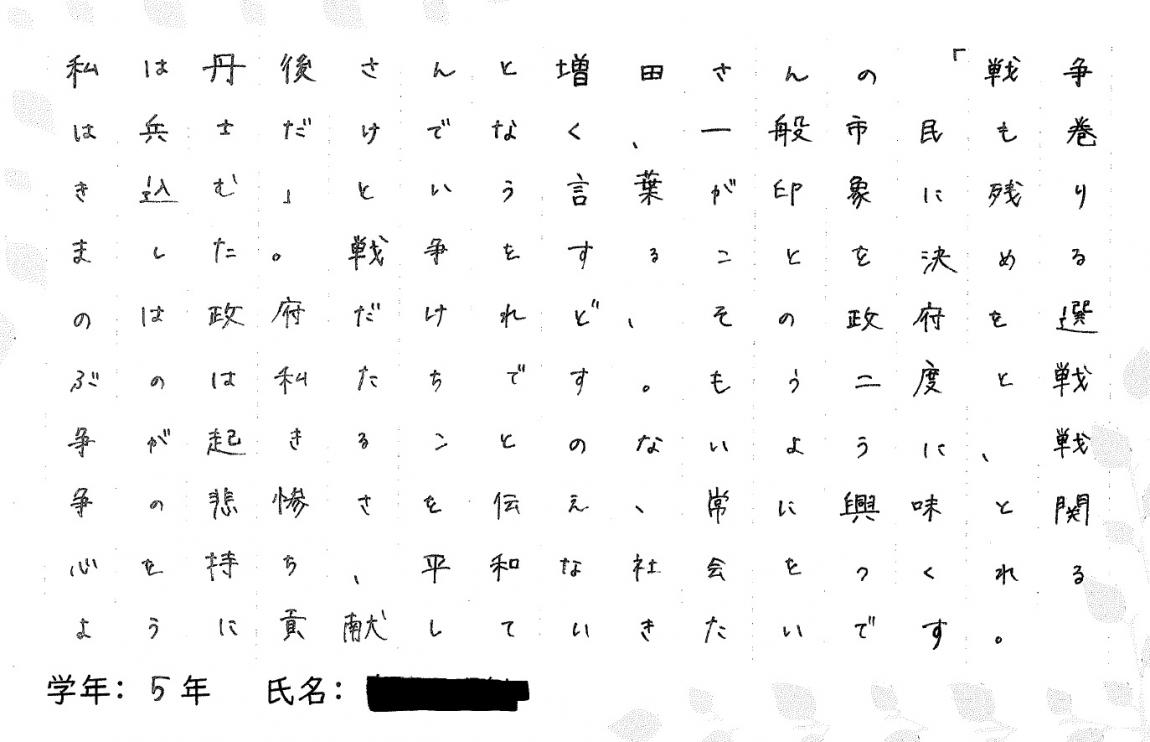 私は丹後さんと増田さんの「戦争
は兵士だけでなく、一般市民も巻
き込む」という言葉が印象に残り
ました。戦争をすることを決める
のは政府だけれど、その政府を選
ぶのは私たちです。もう二度と戦
争が起きることのないように、戦
争の悲惨さを伝え、常に興味と関
心を持ち、平和な社会をつくれる
ように貢献していきたいです。
学年：5年　氏名：